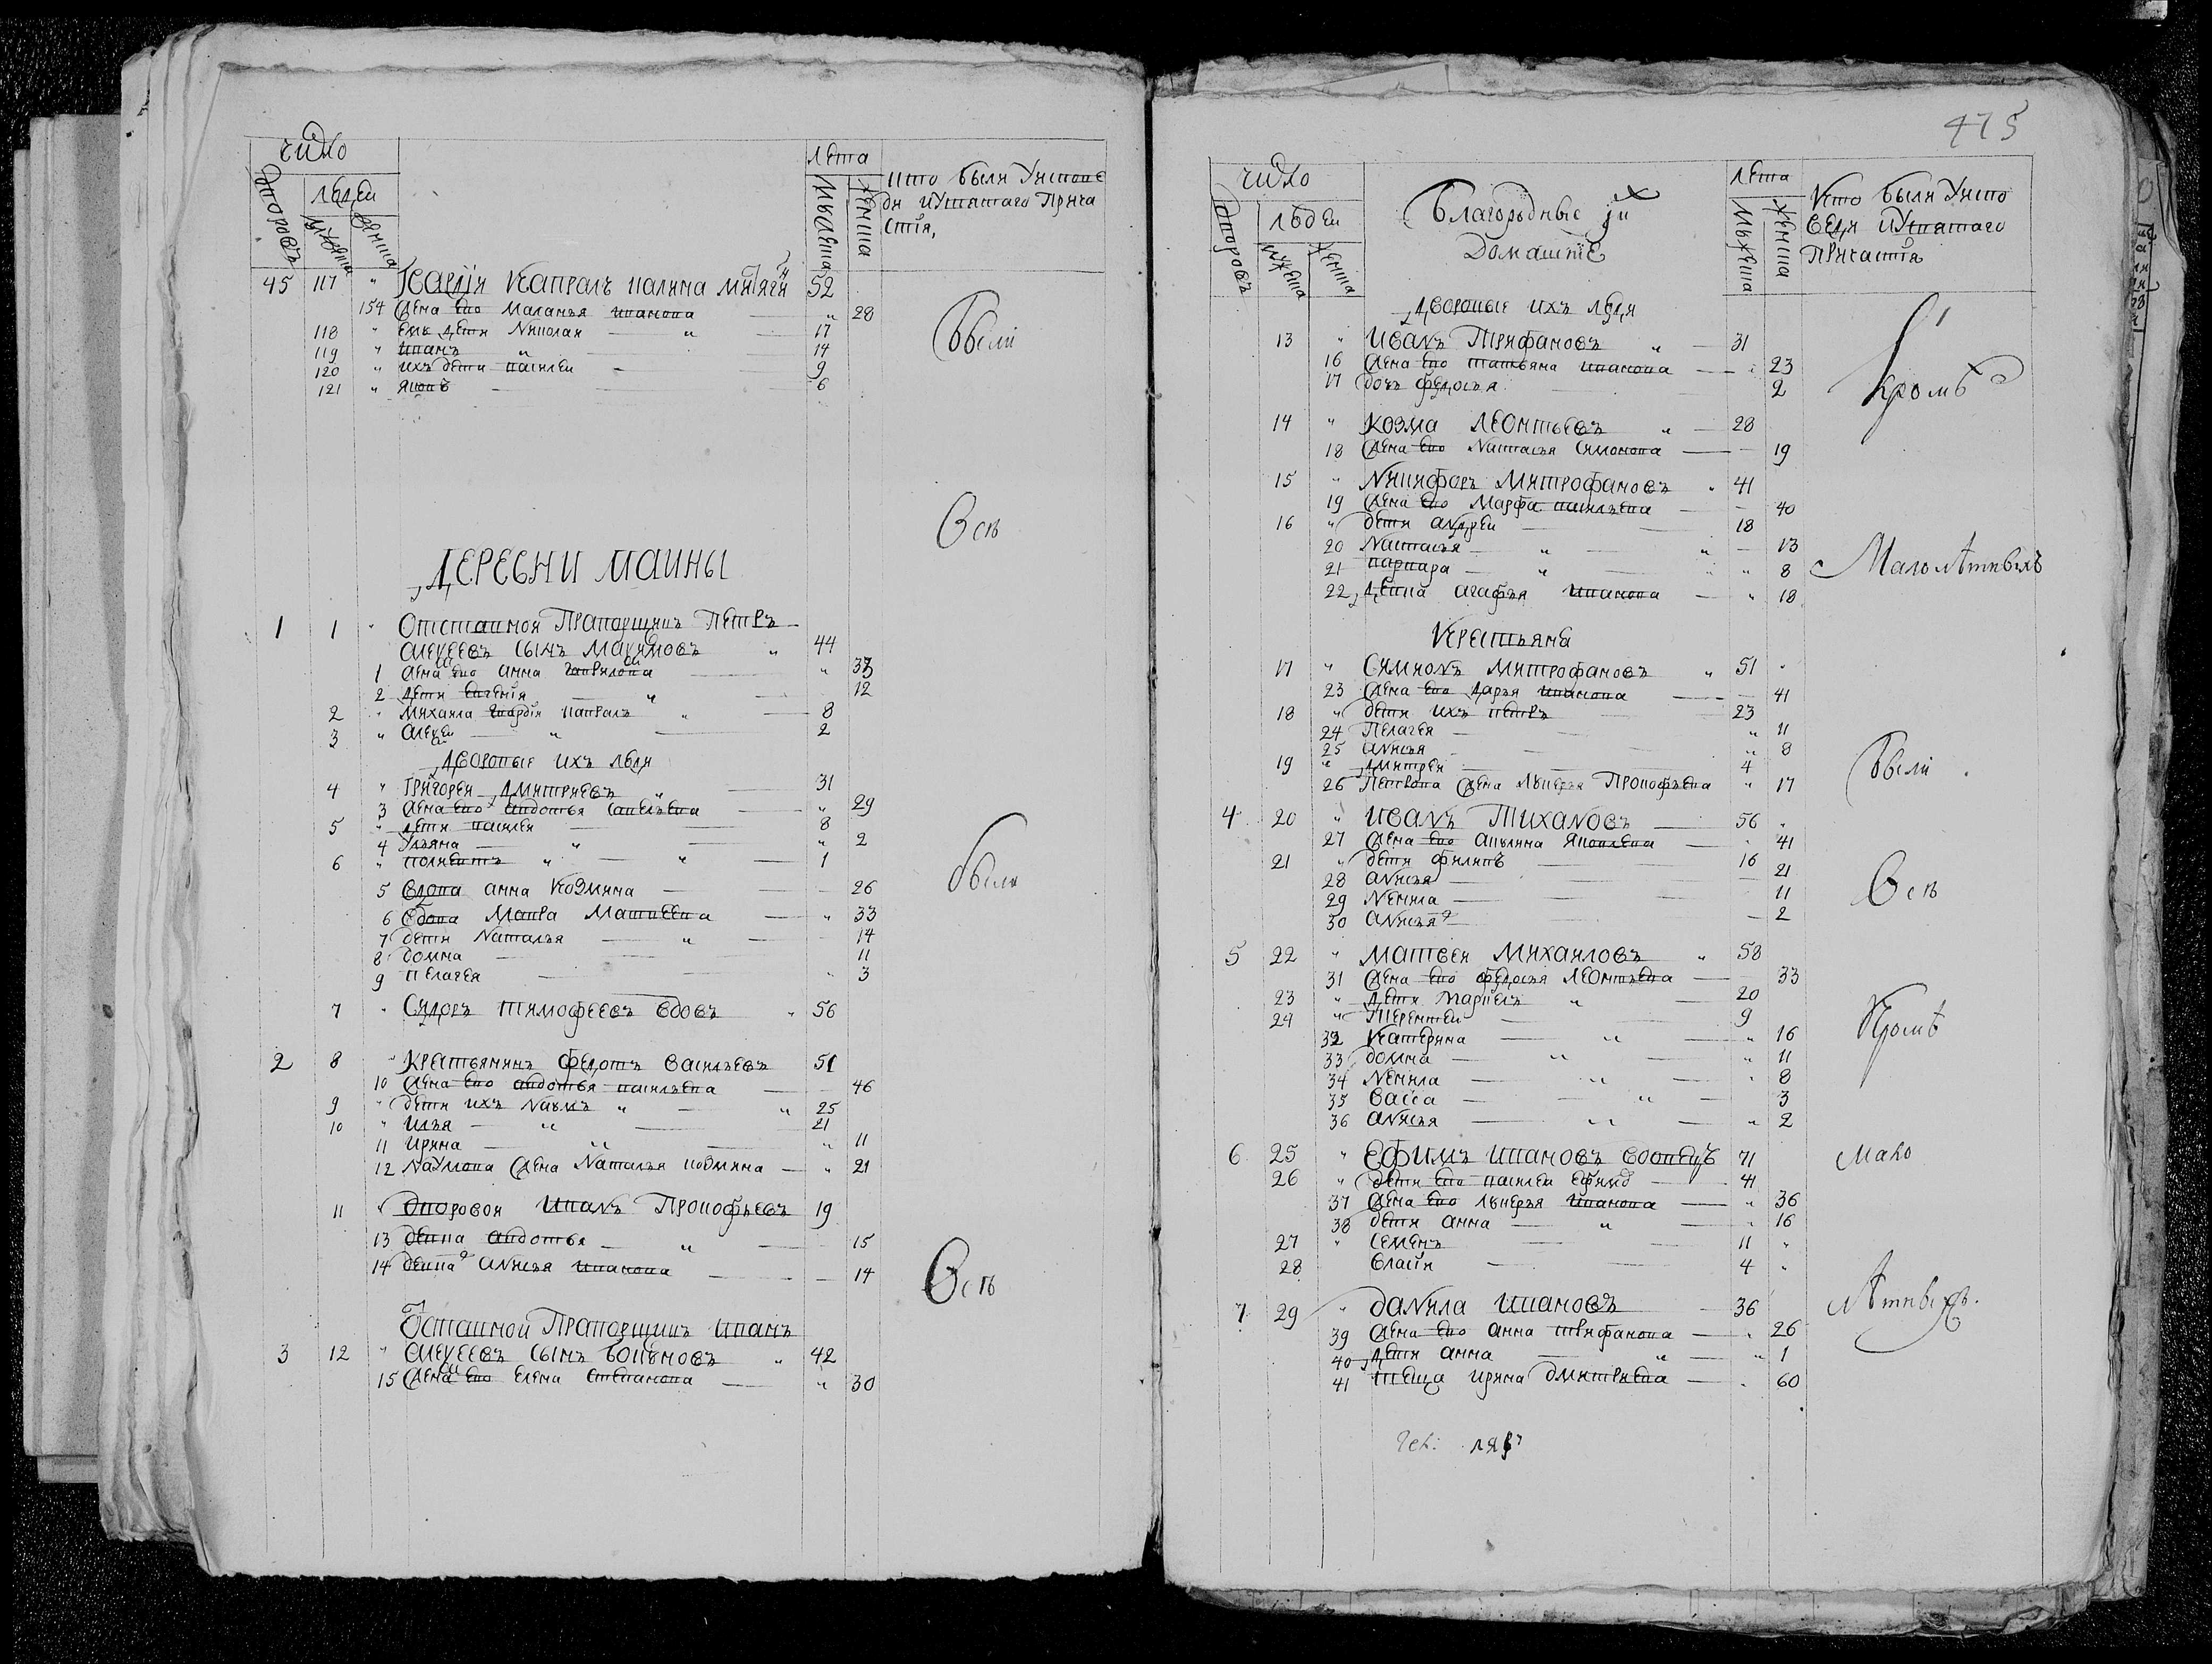 число
лета
дворовъ
людеи
мужеска
женска
мужеска
женска
кто были Уисповe
ди иУсвятаго Прича
стiя,
45 117 " Гвардiи капралъ 52
154 жена ево Маланья иванова " 28
118 " ево дети Николаи " 17
119 " иванъ " 14
120 " ихъ дети василеи 9
121 " яковъ 6
были
Все
ДЕРЕВНИ МАИНЫ
1 1 " Отставной Прапорщикъ Петръ
алексеевъ сынъ Максимовъ " 44
1 жена ево анна гаврилова " 33
2 дети евгенiя " 12
2 " михаила гвардiи капралъ " 8
3 " алексеи " 2
Дворовые ихъ люди
4 " Григореи дмитриевъ " 31
3 жена ево авдотья савельева " 29
5 " дети василеи 8
4 Ульяна " " 2
6 " поликатъ " " 1
5 вдова анна козмина 26
6 вдова Мавра Матвеева " 33
7 дети Наталья " 14
8 домна 11
9 пелагея " 3
были
7 " Сидоръ тимофеевъ вдовъ " 56
2 8 " Крестьянинъ федотъ васильевъ 51
10 жена ево авдотья васильева 46
9 " дети ихъ Наумъ " " 25
10 " илья " 21
11 ирина " " 11
12 Наумова жена Наталья козмина " 21
11 " дворовои Иванъ Прокофьевъ 19
13 девка авдотья " 15
14 девка анисья иванова 14
Все
Отставной Прапорщикъ иванъ
3 12 " алексеевъ сынъ " 42
15 жена ево елена степанова " 30
475
число
лета
дворовъ
людеи
мужеска
женска
Благородные и
Домашнiе
мужеска
женска
кто были Уиспо
веди иУсвятаго
Причастiя
Дворовые ихъ люди
13 " Иванъ Трифановъ " 31
16 жена ево татьяна иванова " 23
17 дочь федосья 2
Кроме
14 " козма Леонтьевъ " 28
18 жена ево Наталья симонова 19
15 " Никифоръ Митрофановъ " 41
19 жена ево Марфа васильева 40
16 " дети андреи 18
20 Наталья " " 13
21 варвара " " 8
22 девка агафья иванова " 18
Малолѣтныхъ
Крестьяне
17 " Симионъ Митрофановъ " 51 "
23 жена ево дарья иванова 41
18 " дети ихъ петръ 23
24 Пелагея " 11
25 анисья " 8
19 " дмитреи 4
26 Петрова жена лукерья Прокофьева " 17
были
4 20 " Иванъ Тихановъ 56 "
27 жена ево акулина яковлева " 41
21 " дети филипъ 16
28 анисья 21
29 Ненила 11
30 анисья 2
Все
5 22 " матвеи Михаиловъ " 58
31 жена ево федосья Леонтьева 33
23 " дети маркелъ " 20
24 " Терентеи 9
32 Катерина " " 16
33 домна " " 11
34 Ненила " " 8
35 васса " 3
36 анисья " " 2
Кромѣ
6 25 " ефимъ ивановъ вдовецъ 71
26 " дети ево василеи 41
37 жена ево лукерья иванова " 36
38 дети анна " " 16
27 " семенъ 11 "
28 4 "
мало
7 29 " данила ивановъ 36
39 жена ево анна трифанова " 26
40 дети анна " " 1
41 теща ирина дмитриева " 60
лѣтныхъ.